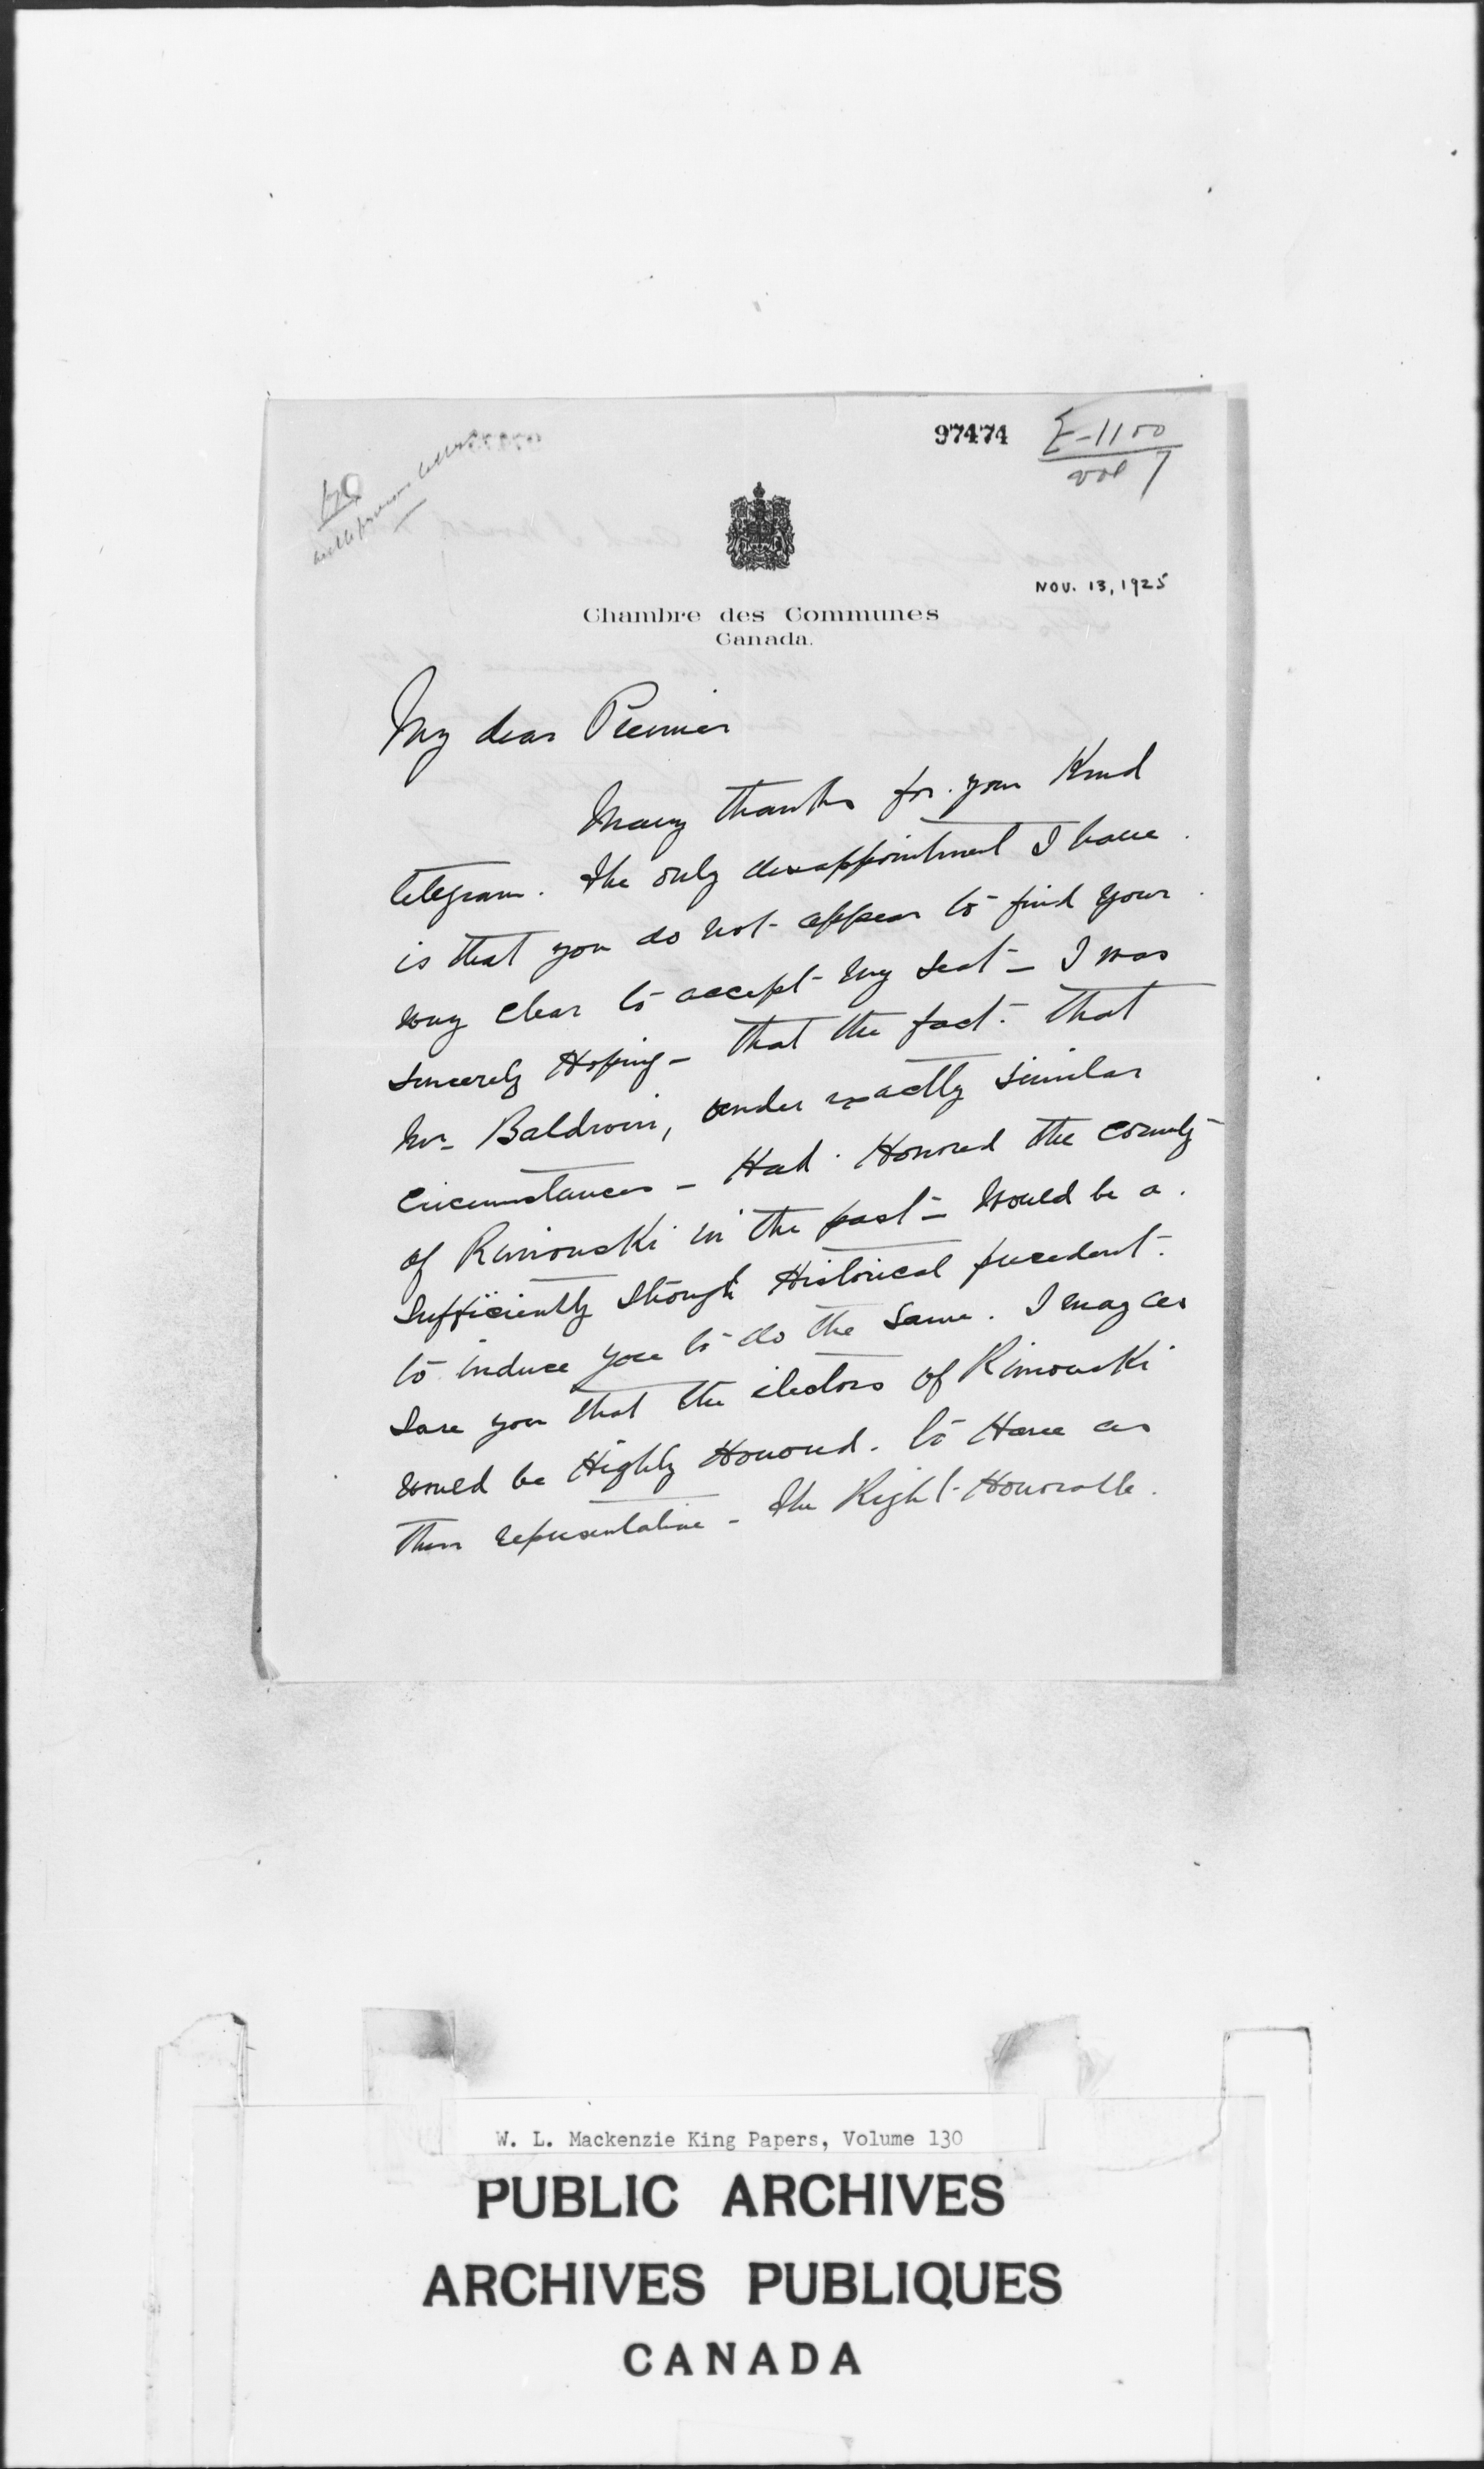 97474
E-1100
vol 7
NOV. 13, 1925
Chambre des Communes
Canada.
My dear Premier
Many thanks for your Kind
telegram. The only disappointment I have
is that you do not appear to find your
way clear to accept my seat - I was
sincerely Hoping - that the fact - that
Mr Baldwin, under exactly similar
circumstances - Had Honored the county
of Rimouski in the past - Would be a
sufficiently strong Historical precedent
to induce you to do the same. I may as
sure you that the electors of Rimouski
would be Highly Honored. to Have as
their representative - the Right-Honorable
W. L. Mackenzie King Papers, Volume 130
PUBLIC ARCHIVES
ARCHIVES PUBLIQUES
CANADA